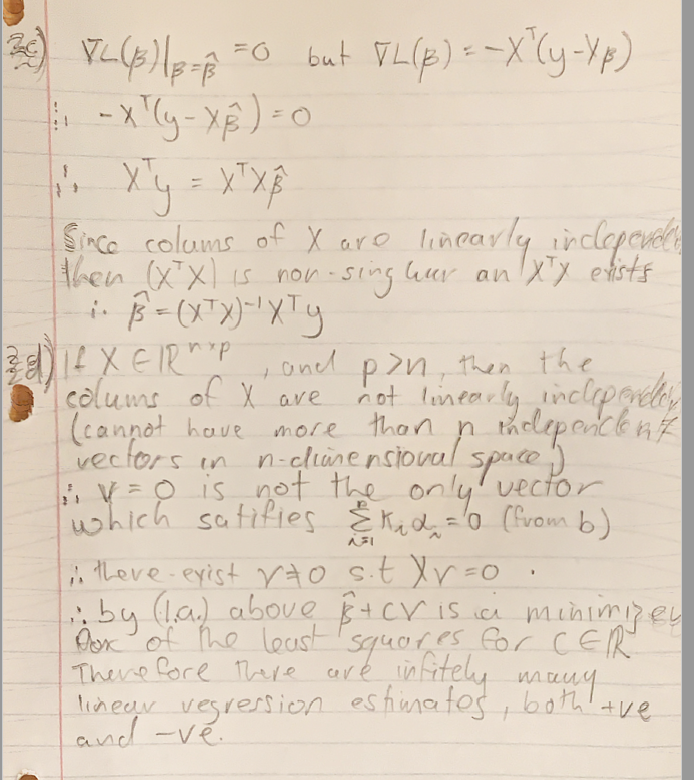 2c) ∇L(β)|β=β̂ =0 but ∇L(β) = -Xᵀ(y-Xβ)
∴ -Xᵀ(y-Xβ̂)=0
∴ Xᵀy = XᵀXβ̂
Since colums of X are linearly independent
then (XᵀX) is non-singluur an XᵀX exists
∴ β̂=(XᵀX)⁻¹Xᵀy
2d) If X∈ℝⁿˣᵖ, and p>n, then the
colums of X are not linearly independen
(cannot have more than n independent
vectors in n-dimensional space)
∴ v=0 is not the only vector
which satifies = 0 (from b)
∴ there exist v≠0 s.t Xv=0 .
∴ by (1.a.) above β̂+cv is a minimizer
of the least squares for C∈ℝ
Therefore there are infitely many
linear regression estimates, both +ve
and -ve.